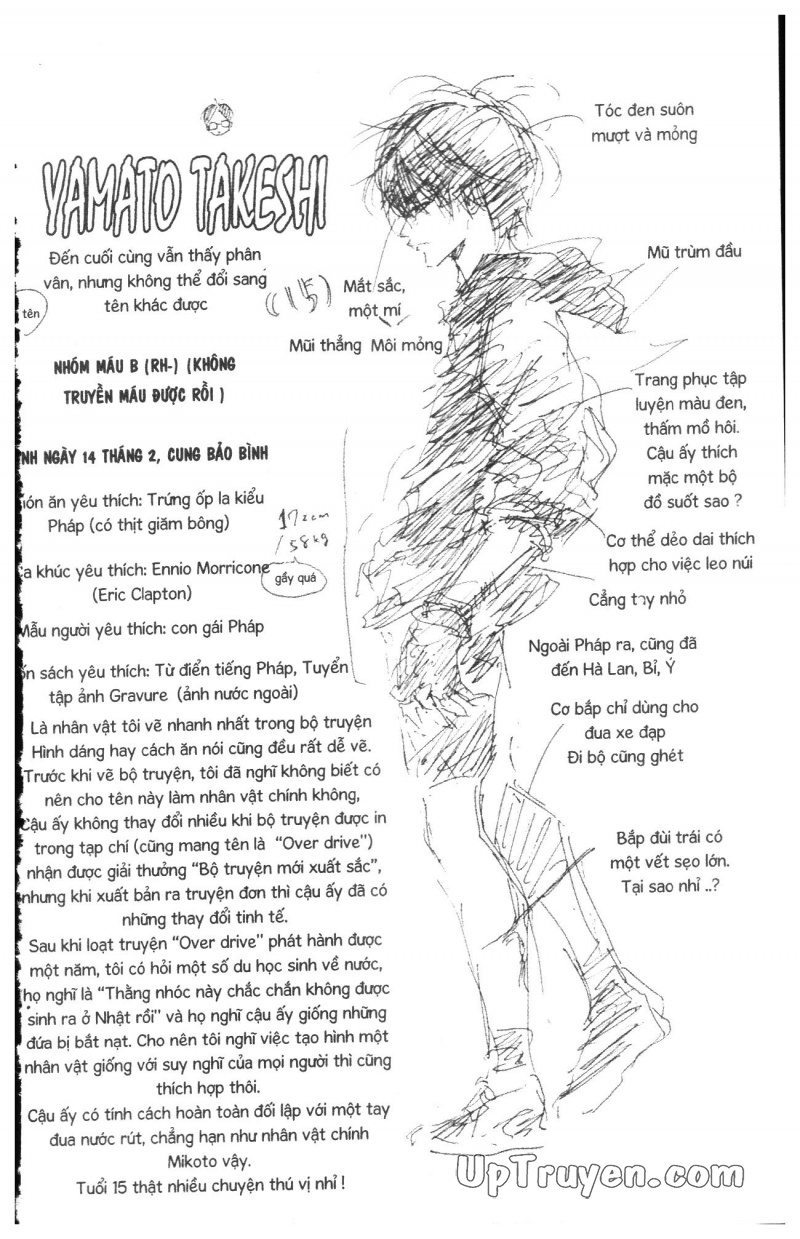 YAMATO TAKESHI
Đến cuối cùng vẫn thấy phân
vân, nhưng không thể đổi sang
tên khác được
tên
((15)
NHÓM MÁU B (RH-) (KHÔNG
TRUYỀN MÁU ĐƯỢC RỒI )
NH NGÀY 14 THÁNG 2, CUNG BẢO BÌNH
ón ăn yêu thích: Trứng ốp la kiểu
Pháp (có thịt giăm bông)
17 cm
/58kg
gầy quá
a khúc yêu thích: Ennio Morricone
(Eric Clapton)
Mẫu người yêu thích: con gái Pháp
ốn sách yêu thích: Từ điển tiếng Pháp, Tuyển
tập ảnh Gravure (ảnh nước ngoài)
Là nhân vật tôi vẽ nhanh nhất trong bộ truyện
Hình dáng hay cách ăn nói cũng đều rất dễ vẽ.
Trước khi vẽ bộ truyện, tôi đã nghĩ không biết có
nên cho tên này làm nhân vật chính không,
Cậu ấy không thay đổi nhiều khi bộ truyện được in
trong tạp chí (cũng mang tên là “Over drive”)
nhận được giải thưởng “Bộ truyện mới xuất sắc”,
nhưng khi xuất bản ra truyện đơn thì cậu ấy đã có
những thay đổi tinh tế.
Sau khi loạt truyện “Over drive” phát hành được
một năm, tôi có hỏi một số du học sinh về nước,
họ nghĩ là “Thằng nhóc này chắc chắn không được
sinh ra ở Nhật rồi” và họ nghĩ cậu ấy giống những
đứa bị bắt nạt. Cho nên tôi nghĩ việc tạo hình một
nhân vật giống với suy nghĩ của mọi người thì cũng
thích hợp thôi.
Cậu ấy có tính cách hoàn toàn đối lập với một tay
đua nước rút, chẳng hạn như nhân vật chính
Mikoto vậy.
Tuổi 15 thật nhiều chuyện thú vị nhỉ !
Tóc đen suôn
mượt và mỏng
Mũ trùm đầu
Mắt sắc,
một mí
Mũi thẳng Môi mỏng
Trang phục tập
luyện màu đen,
thấm mồ hôi.
Cậu ấy thích
mặc một bộ
đồ suốt sao ?
Cơ thể dẻo dai thích
hợp cho việc leo núi
Cẳng tay nhỏ
Ngoài Pháp ra, cũng đã
đến Hà Lan, Bỉ, Ý
Cơ bắp chỉ dùng cho
đua xe đạp
Đi bộ cũng ghét
Bắp đùi trái có
một vết sẹo lớn.
Tại sao nhỉ ..?
UpTruyen.com